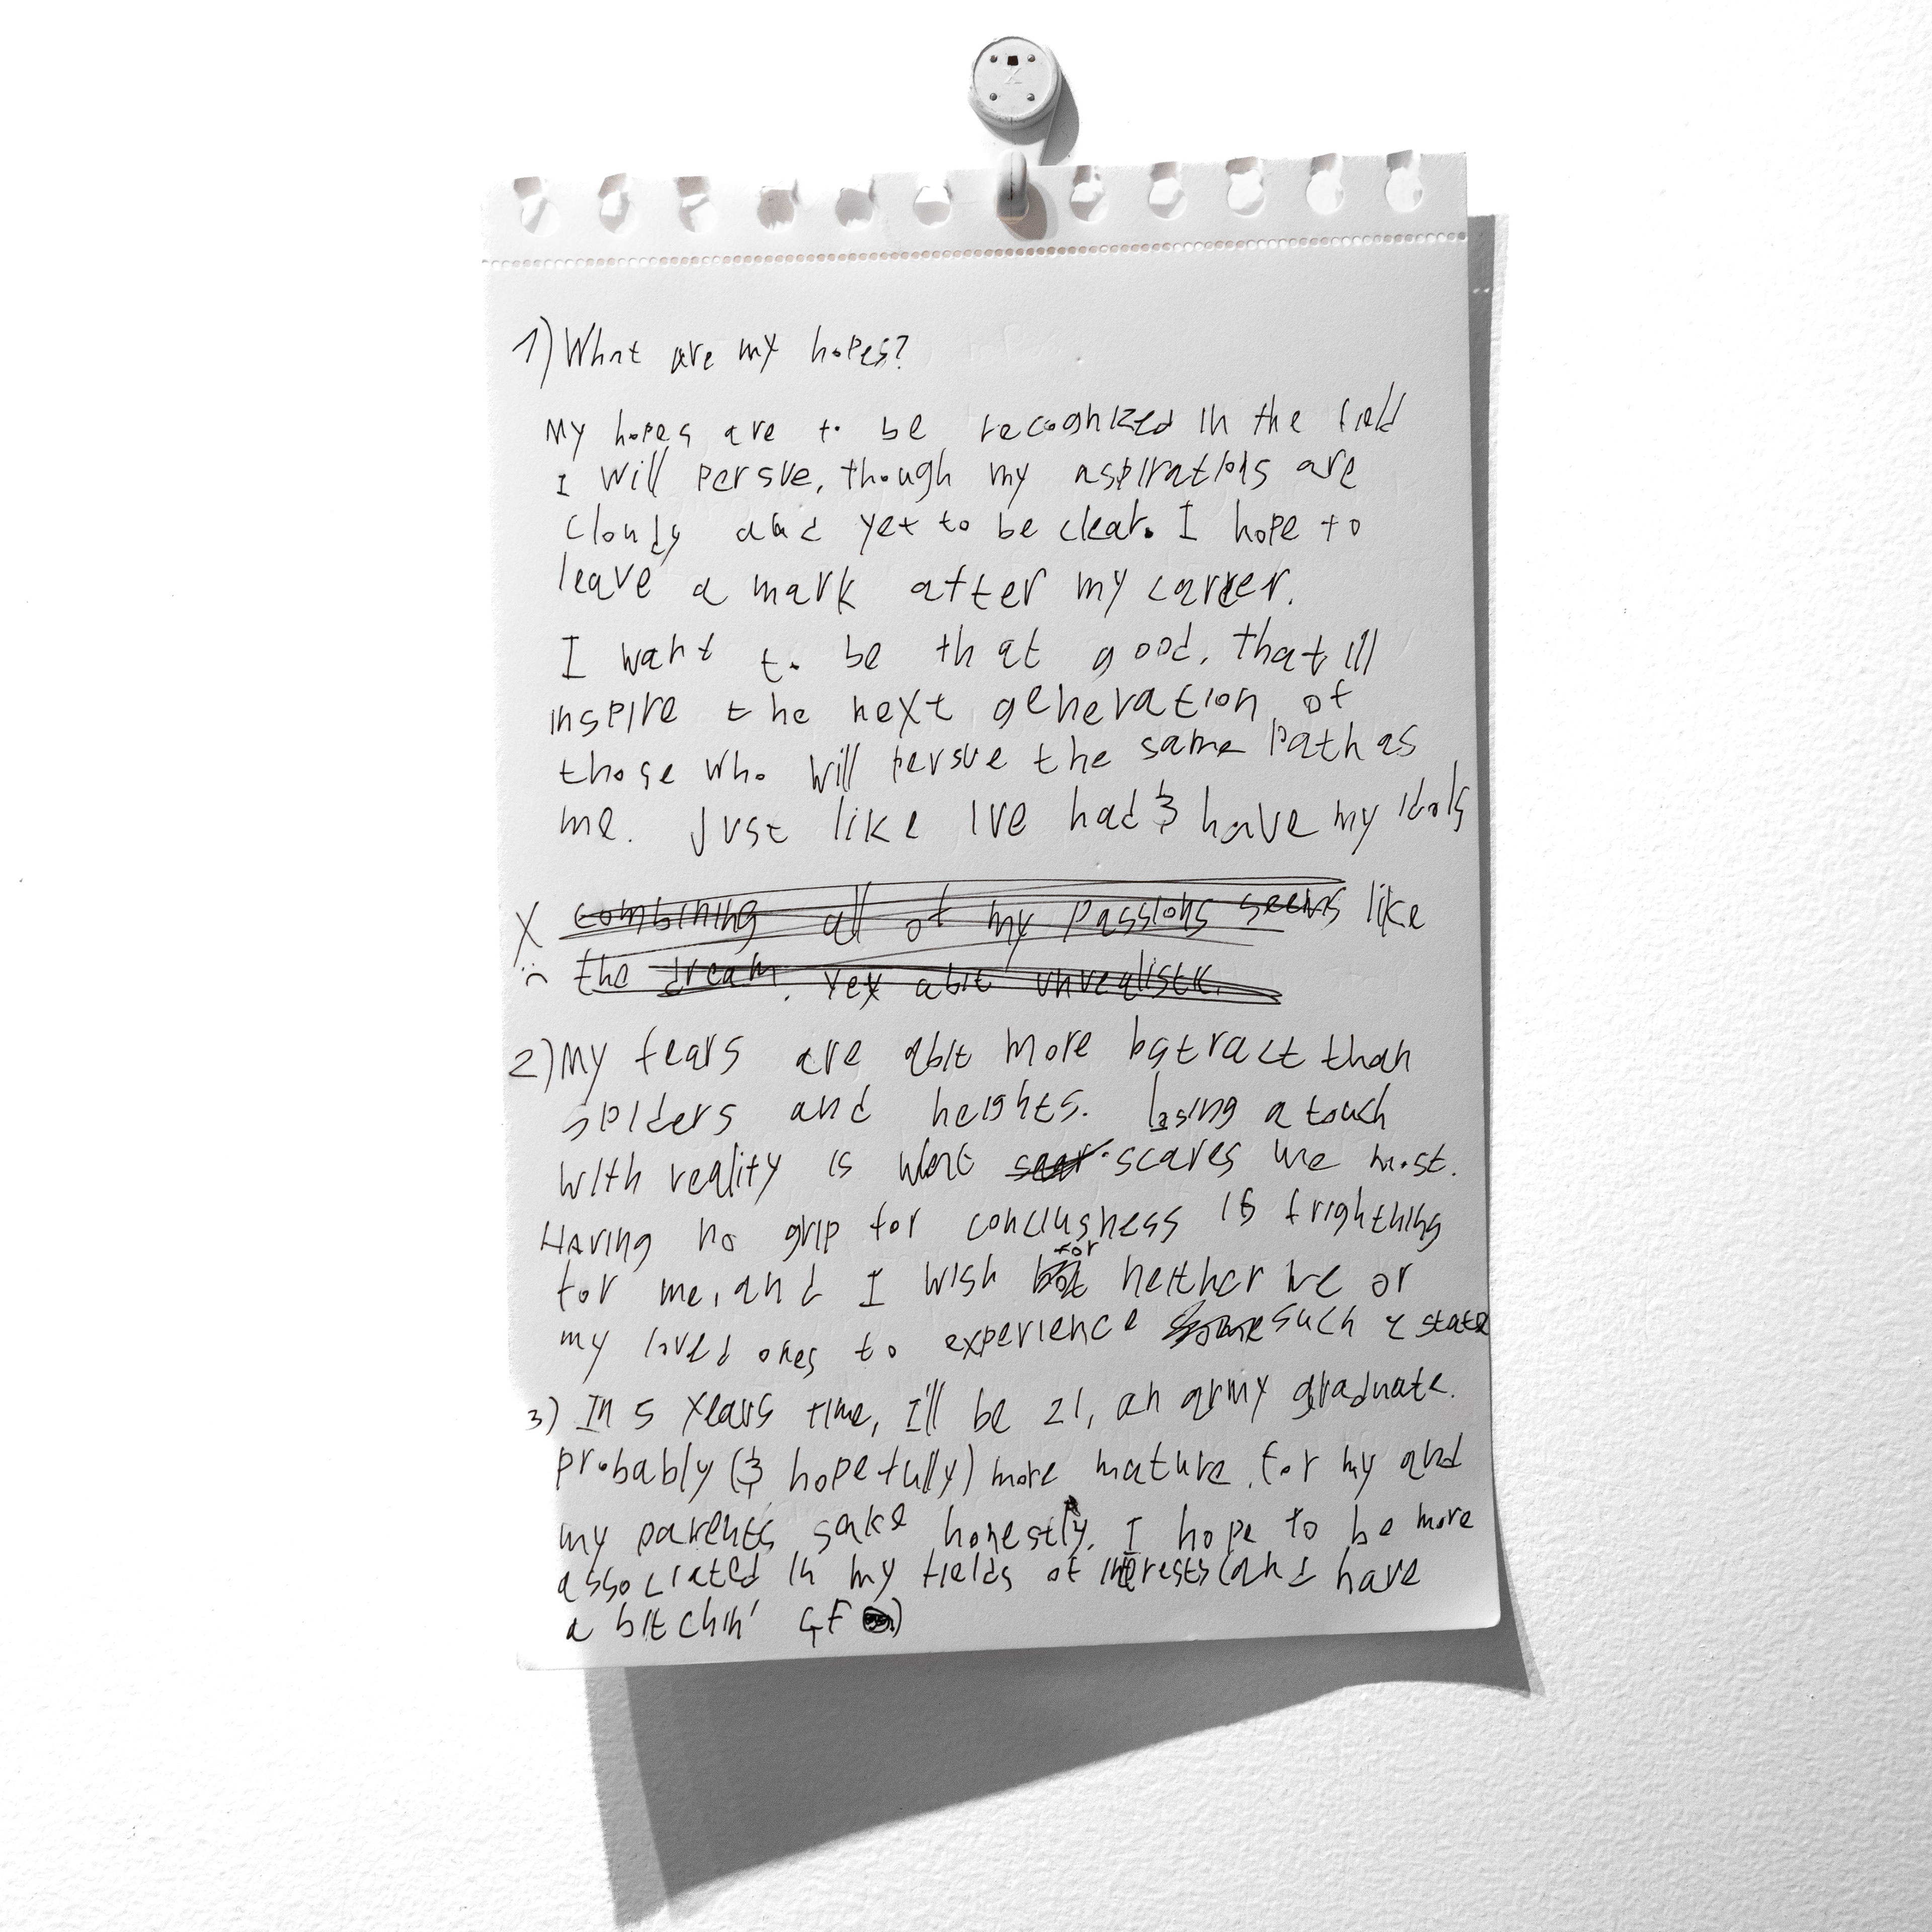 1) What are my hopes?
My hopes are to be recognized in the field
I will persue, though my aspirations are
cloudy and yet to be clear. I hope to
leave a mark after my career.
I want to be that good, that ill
inspire the next generation of
those who will persue the same path as
me. Just like Ive had & have my idols
X combining all of my passions seems like
:( the dream. Yet abit unrealistic.
2) My fears are abit more batract than
spiders and heights. losing a touch
with reality is what scares me most.
Having no grip for conciusness is frightning
for me, and I wish for neither me or
my loved ones to experience such a state
3) In 5 years time, I'll be 21, an army graduate.
probably (& hopefully) more mature. for my and
my parents sake honestly. I hope to be more
associated in my fields of interests (and have
a bitchin' GF)